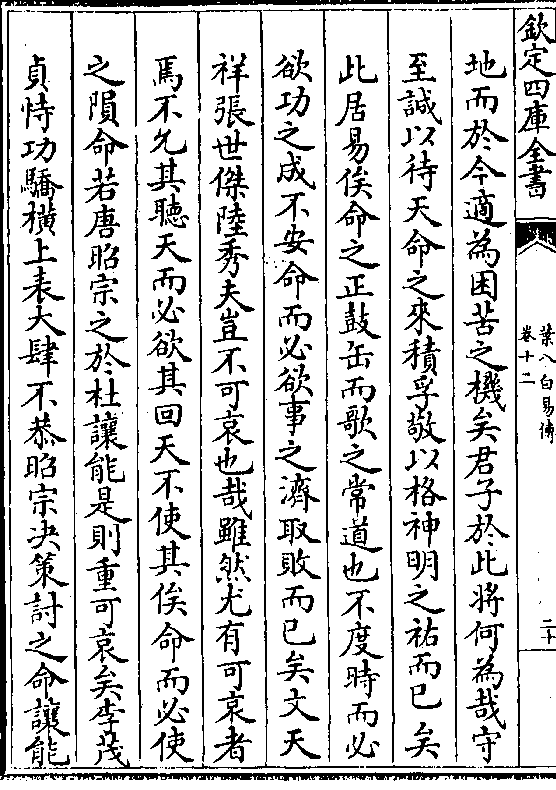 欽定四庫全書
葉八白易傳
卷十二
二十
地而於今適為困苦之機矣君子於此將何為哉守
至誠以待天命之來積孚敬以格神明之祐而已矣
此居易俟命之正鼓缶而歌之常道也不度時而必
欲功之成不安命而必欲事之濟取敗而已矣文天
祥張世傑陸秀夫豈不可哀也哉雖然尤有可哀者
焉不允其聽天而必欲其回天不使其俟命而必使
之隕命若唐昭宗之於杜讓能是則重可哀矣李茂
貞恃功驕橫上表大肆不恭昭宗决策討之命讓能